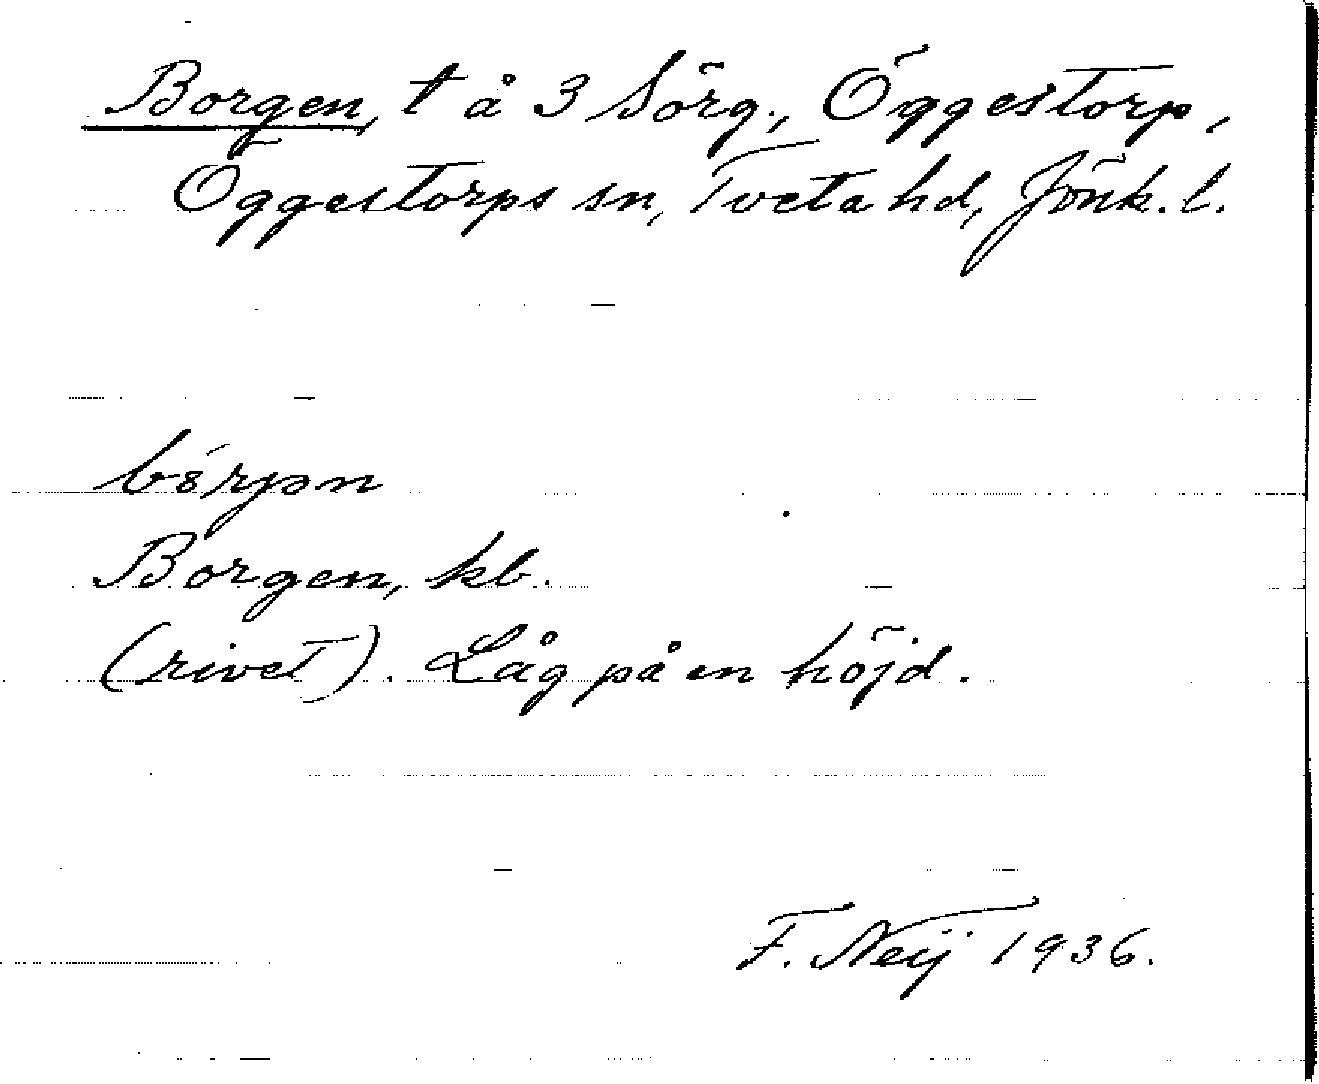 Borgen, t å 3 Sörg., Öggestorp,
Öggestorps sn, Tveta hd, Jönk. l.
bórjən
Borgen, kb.
(rivet). Låg på en höjd.
F. Neij 1936.